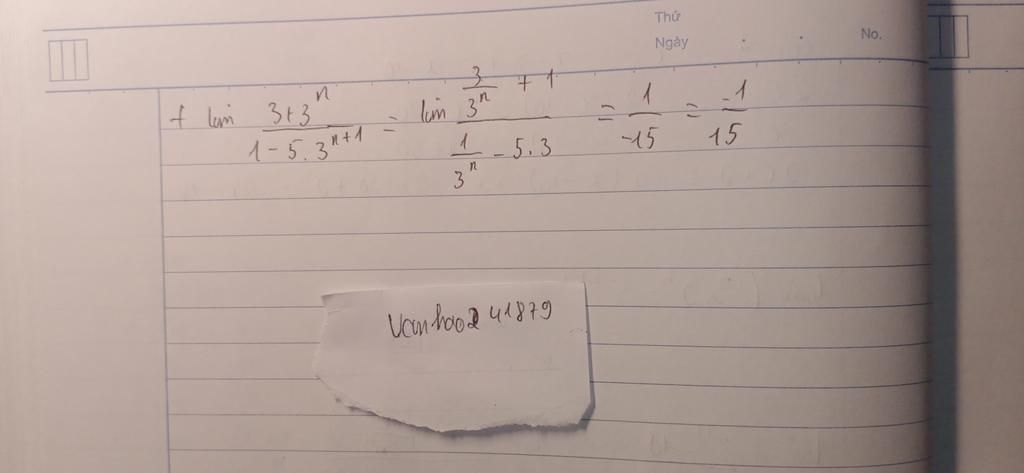 Thứ
Ngày
No.
f lim (3+3^n)/(1-5.3^(n+1)) = lim (3/3^n + 1)/(1/3^n - 5.3) = 1/-15 = -1/15
Vanhao241879